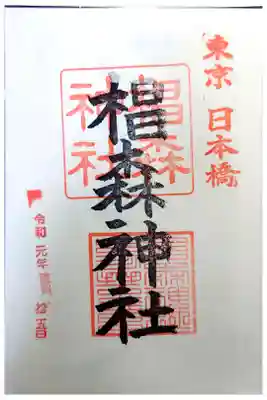 東京 日本橋
椙森神社
椙森神社
令和 元年 拾五日